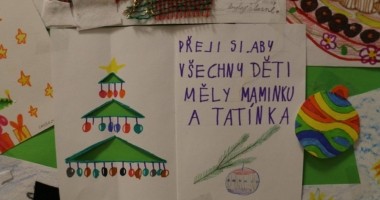 PŘEJI SI, ABY
VŠECHNY DĚTI
MĚLY MAMINKU
A TATÍNKA